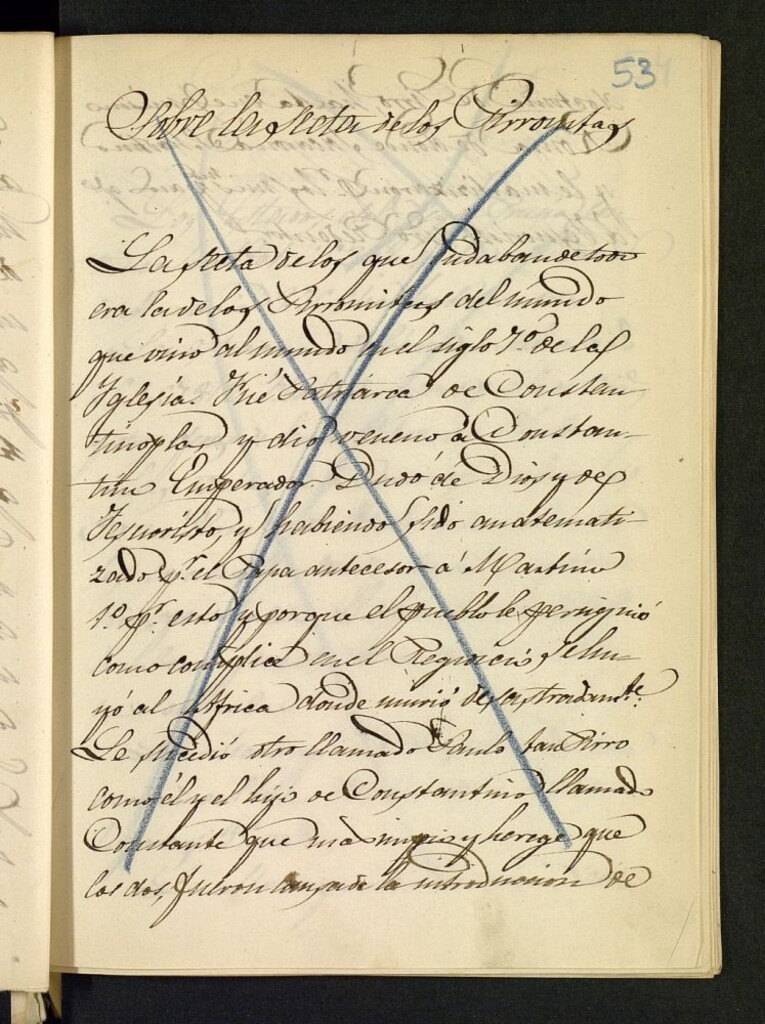 53
Sobre la secta de los Pirronitas
La secta de los que dudaban de todo
era la de los Pirronitas del mundo
que vino al mundo en el siglo 7º de la
Yglesia. Fué Patriarca de Constan-
tinopla, y dio veneno á Constan-
tino Emperador. Dudó de Dios y de
Jesucristo, y habiendo sido anatemati-
zado pr. el Papa antecesor á Martino
1º pr. esto y porque el pueblo le persiguió
como complice en el Regicidio, se hu-
yó al Africa donde murió desastradamte.
Le sucedió otro llamado Paulo tan Pirro
como él y el hijo de Constantino llamado
Constante que más impio y herege que
los dos, fueron causa de la introducion de